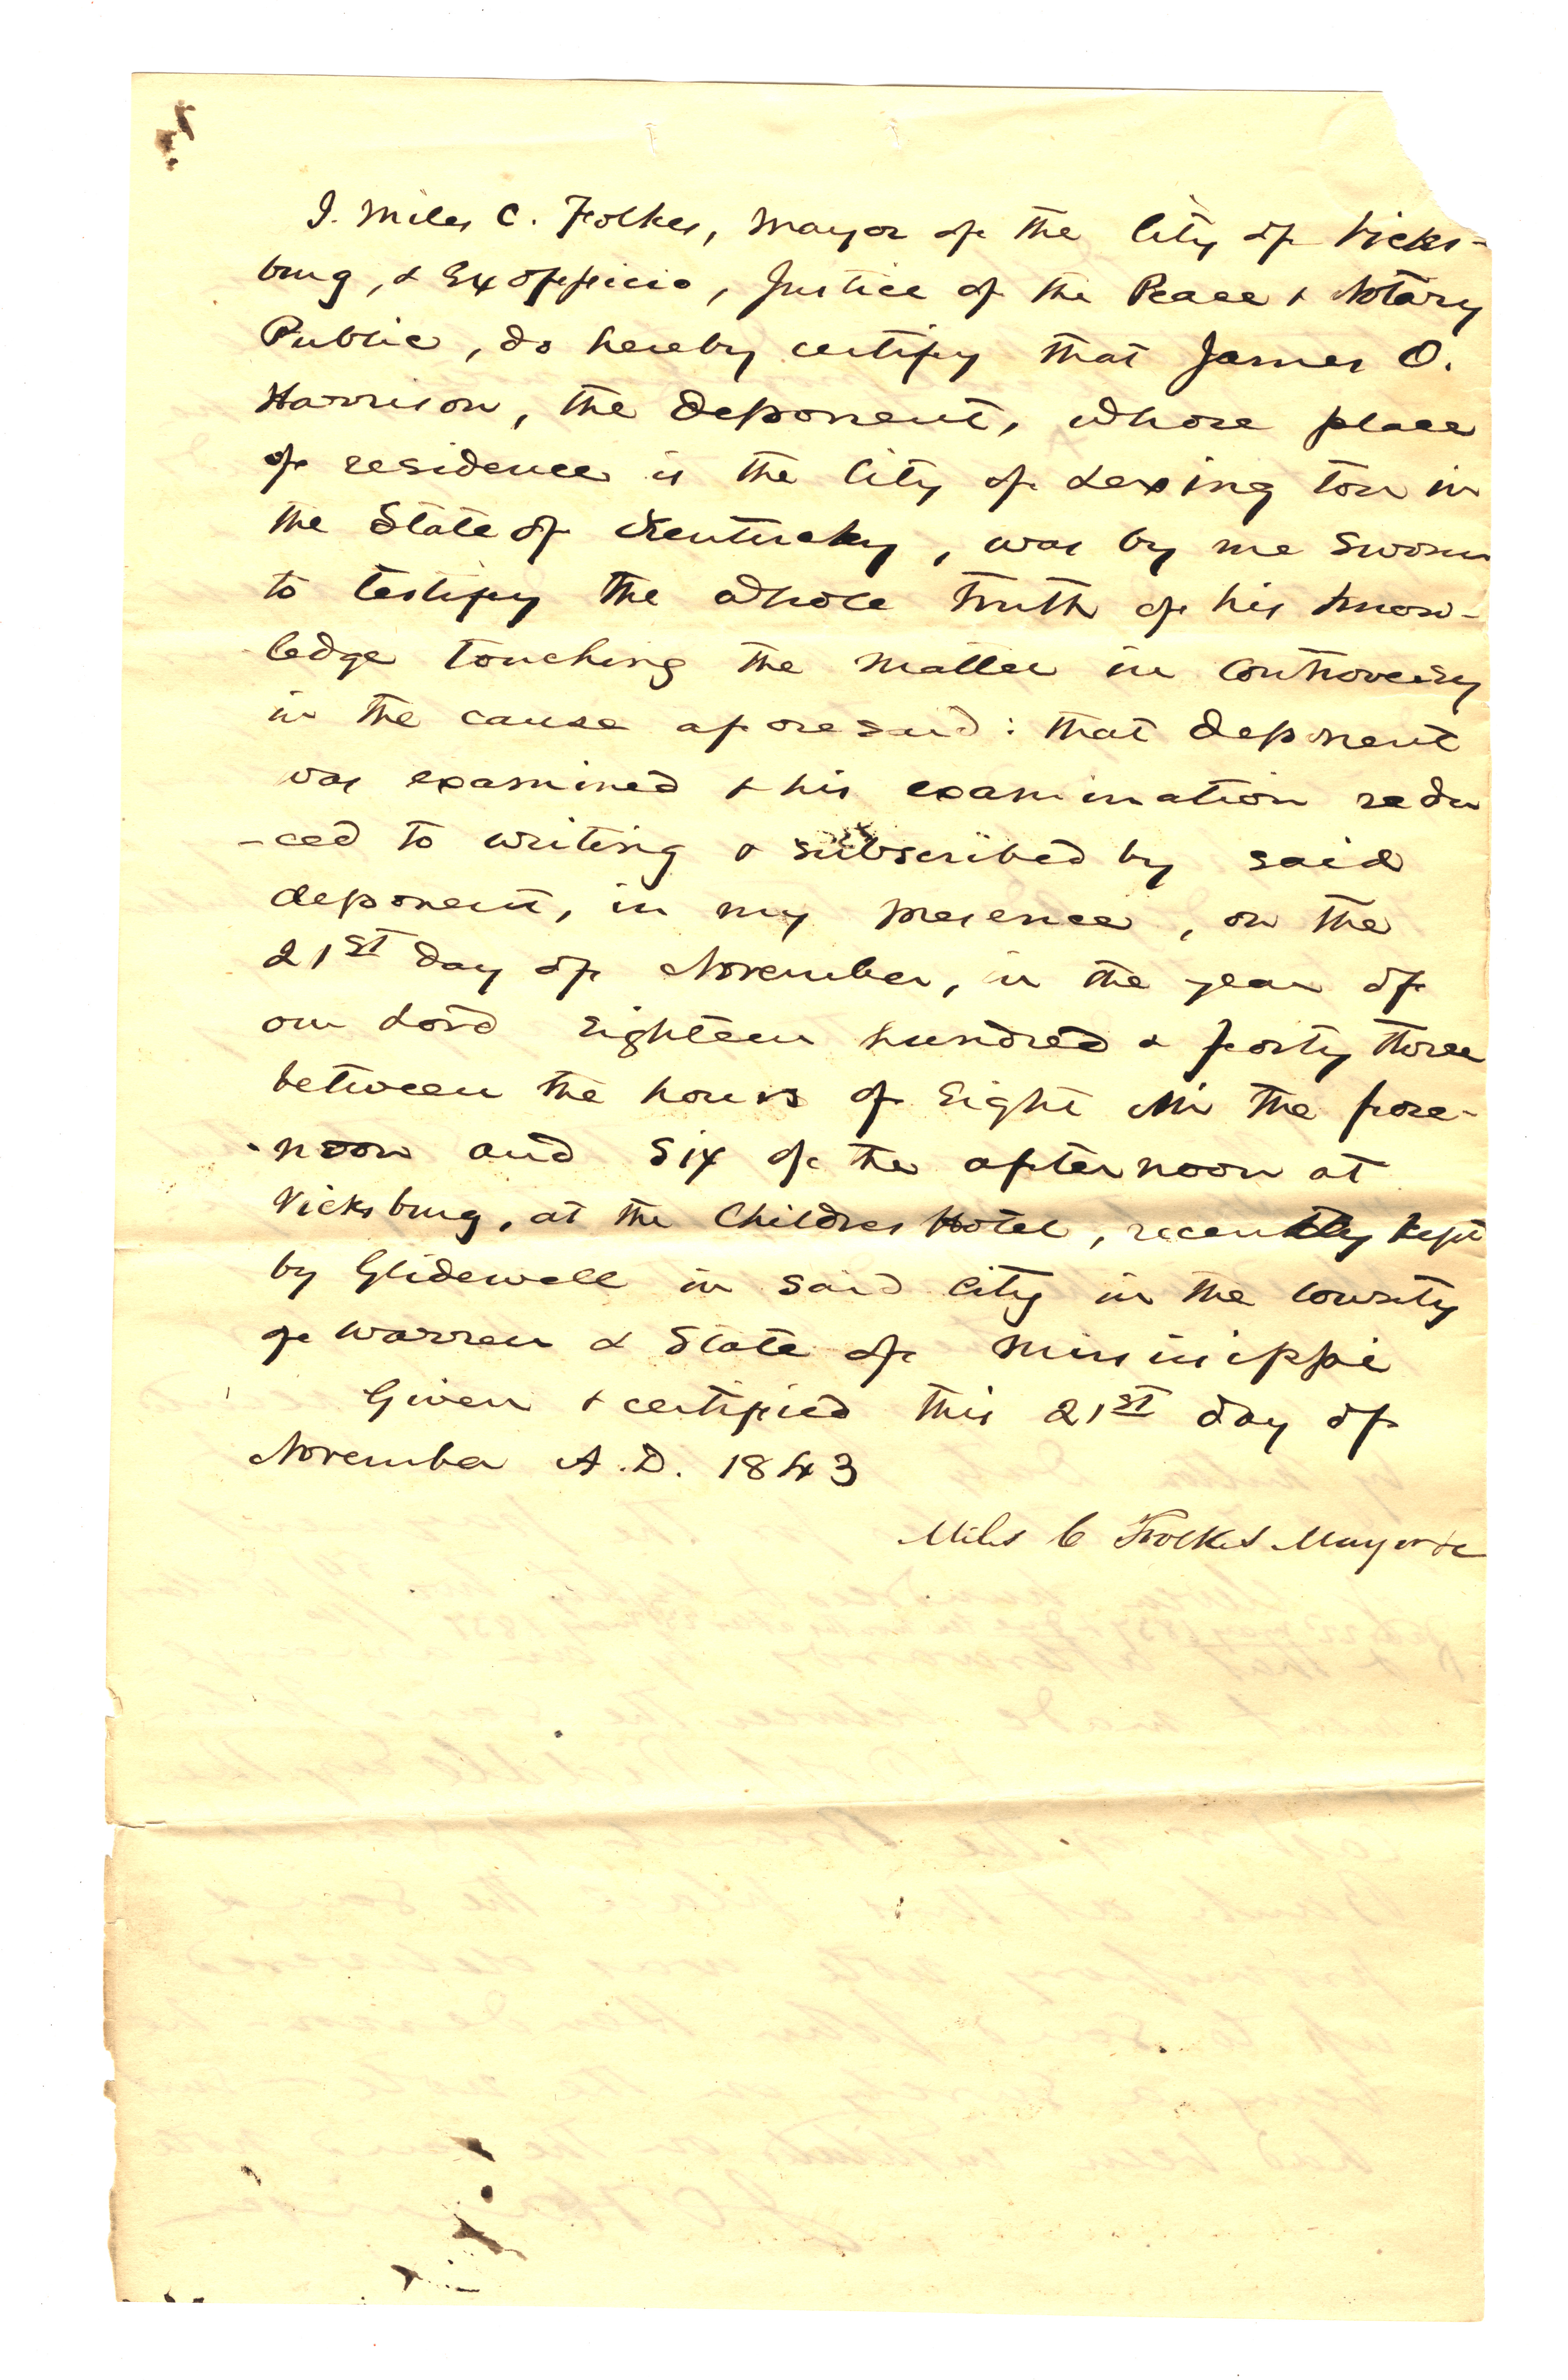 I. Miles C. Folkes, Mayor of the City of Vicks-
burg, & Ex officio, Justice of the Peace & Notary
Public, do hereby certify that James O.
Harrison, the deponent, whose place
of residence is the City of Lexington in
the State of Kentucky, was by me sworn
to testify the whole truth of his know-
ledge touching the matter in controversy
in the cause aforesaid: that deponent
was examined & his examination redu
-ced to writing & subscribed by said
deponent, in my presence, on the
21st day of November, in the year of
our Lord Eighteen hundred & forty three
between the hours of Eight in the fore-
-noon and Six of the afternoon at
Vicksburg, at the Childres Hotel, recently kept
by Glidewell in said City in the County
of Warren & State of Mississippi
Given & certified this 21st day of
November A.D. 1843
Miles C Folkes Mayor &c